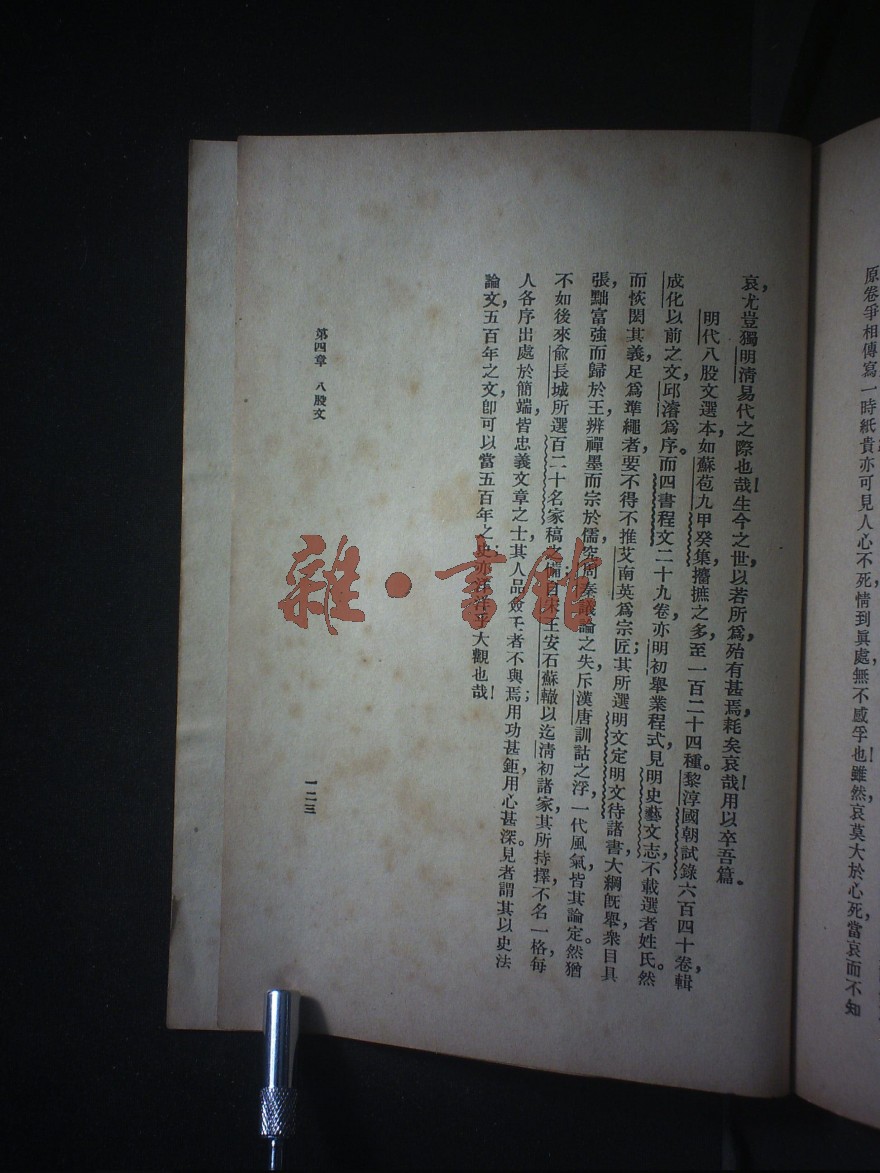 原卷爭相傳寫一時紙貴亦可見人心不死，情到眞處，無不感孚也！雖然，哀莫大於心死，當哀而不知
哀，尤豈獨明淸易代之際也哉！生今之世，以若所爲，殆有甚焉，耗矣哀哉！用以卒吾篇。
明代八股文選本如蘇苞九甲癸集，攟摭之多，至一百二十四種。黎淳國朝試錄六百四十卷，輯
成化以前之文，邱濬爲序。而四書程文二十九卷，亦明初舉業程式，見明史藝文志，不載選者姓氏。然
而恢閎其義，足爲準繩者，要不得不推艾南英爲宗匠；其所選明文定明文待諸書，大綱旣舉，衆目具
張，黜富強而歸於王，辨禪墨而宗於儒，究周秦議論之失，斥漢唐訓詁之浮，一代風氣，皆其論定。然猶
不如後來兪長城所選百二十名家稿之備；自宋王安石蘇轍以迄淸初諸家，其所持擇，不名一格，每
人各序出處於簡端，皆忠義文章之士，其人品僉壬者不與焉；用功甚鉅，用心甚深。見者謂其以史法
論文，五百年之文，卽可以當五百年之史，亦洋洋乎大觀也哉！
第四章　八股文
一二三
雜·書館